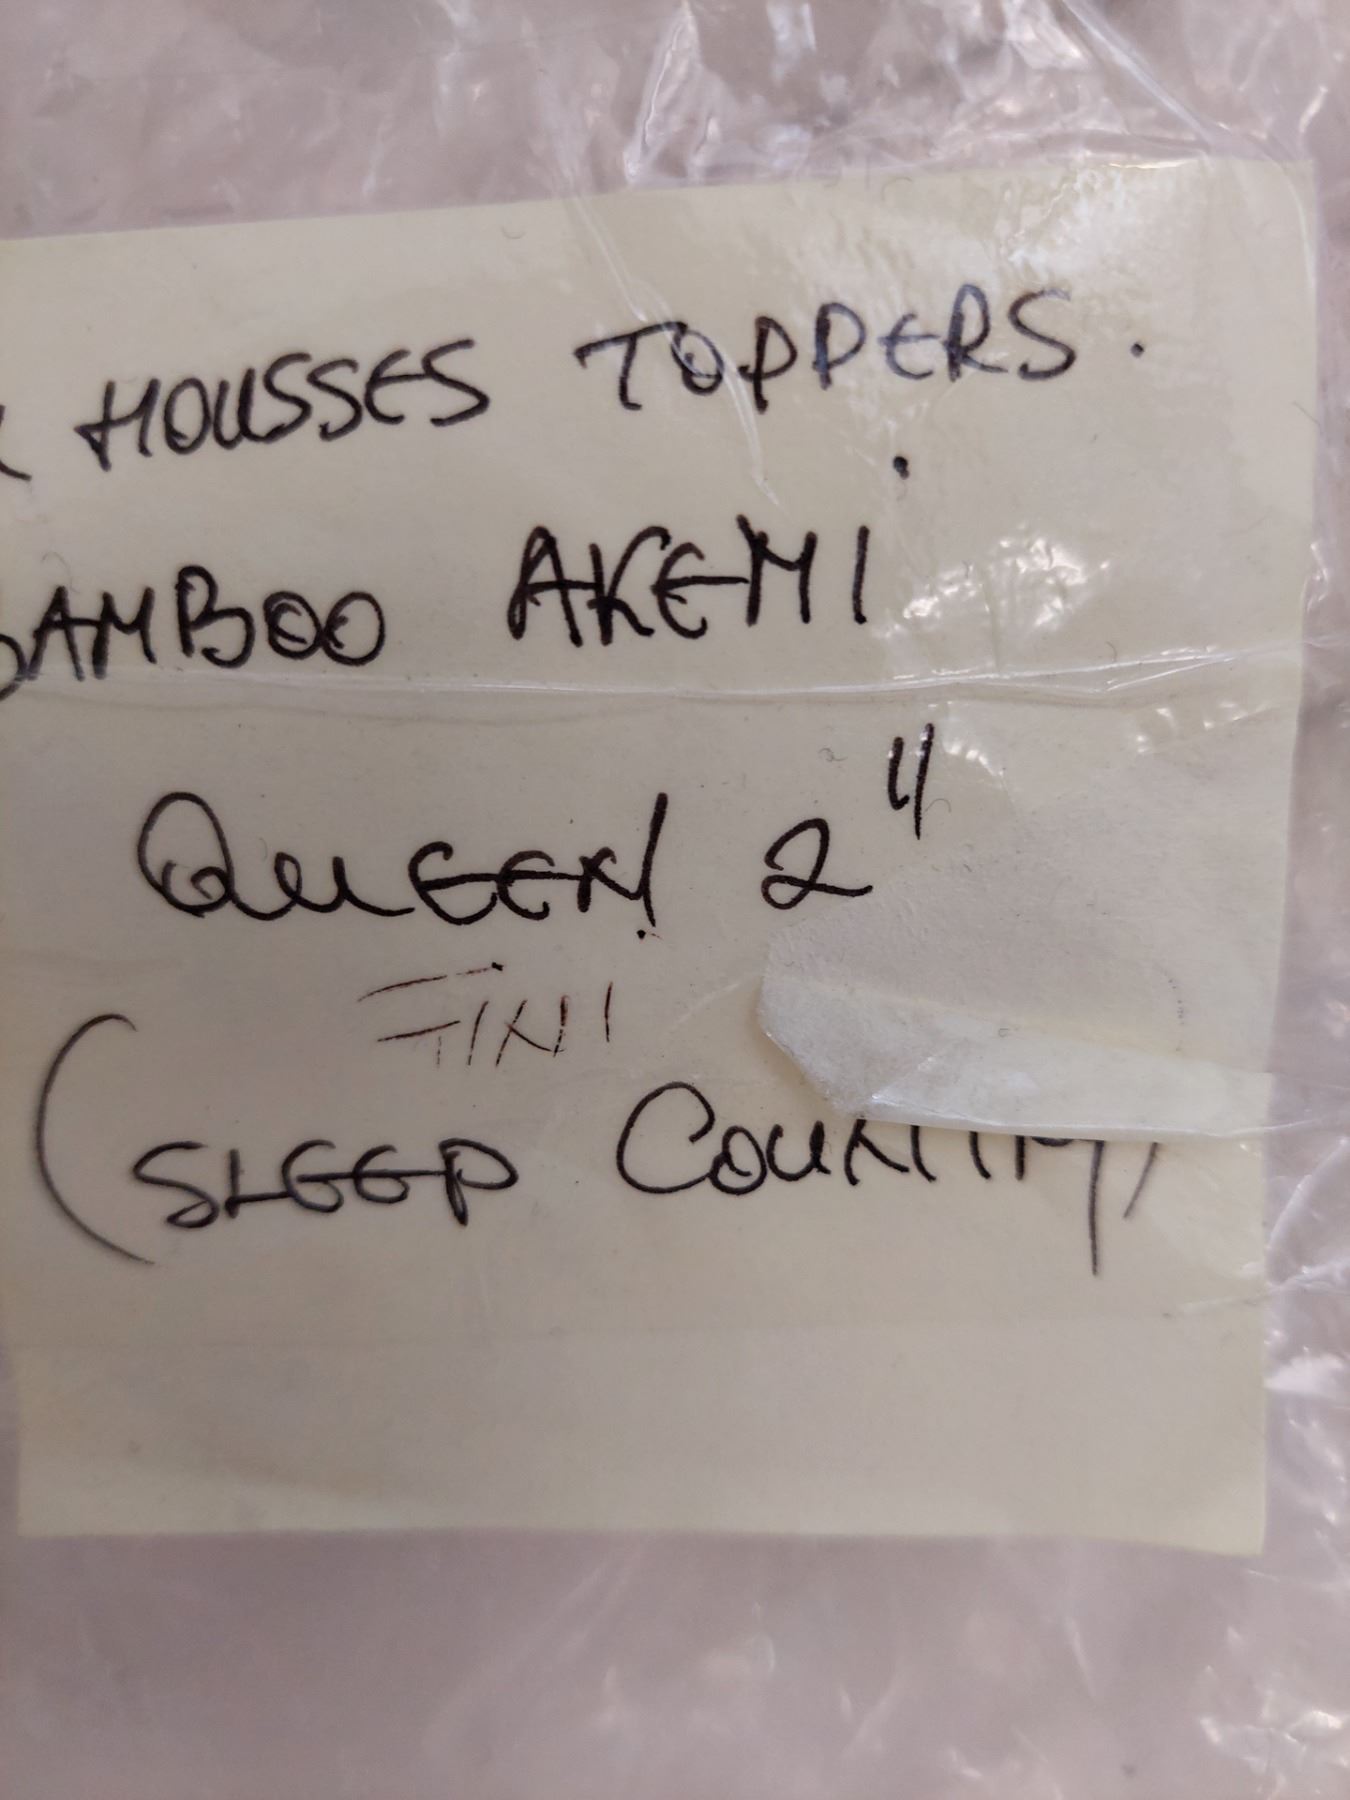 HOUSSES TOPPERS.
BAMBOO AKEMI
QUEEN 2"
FINI
(SLEEP COUNTRY)